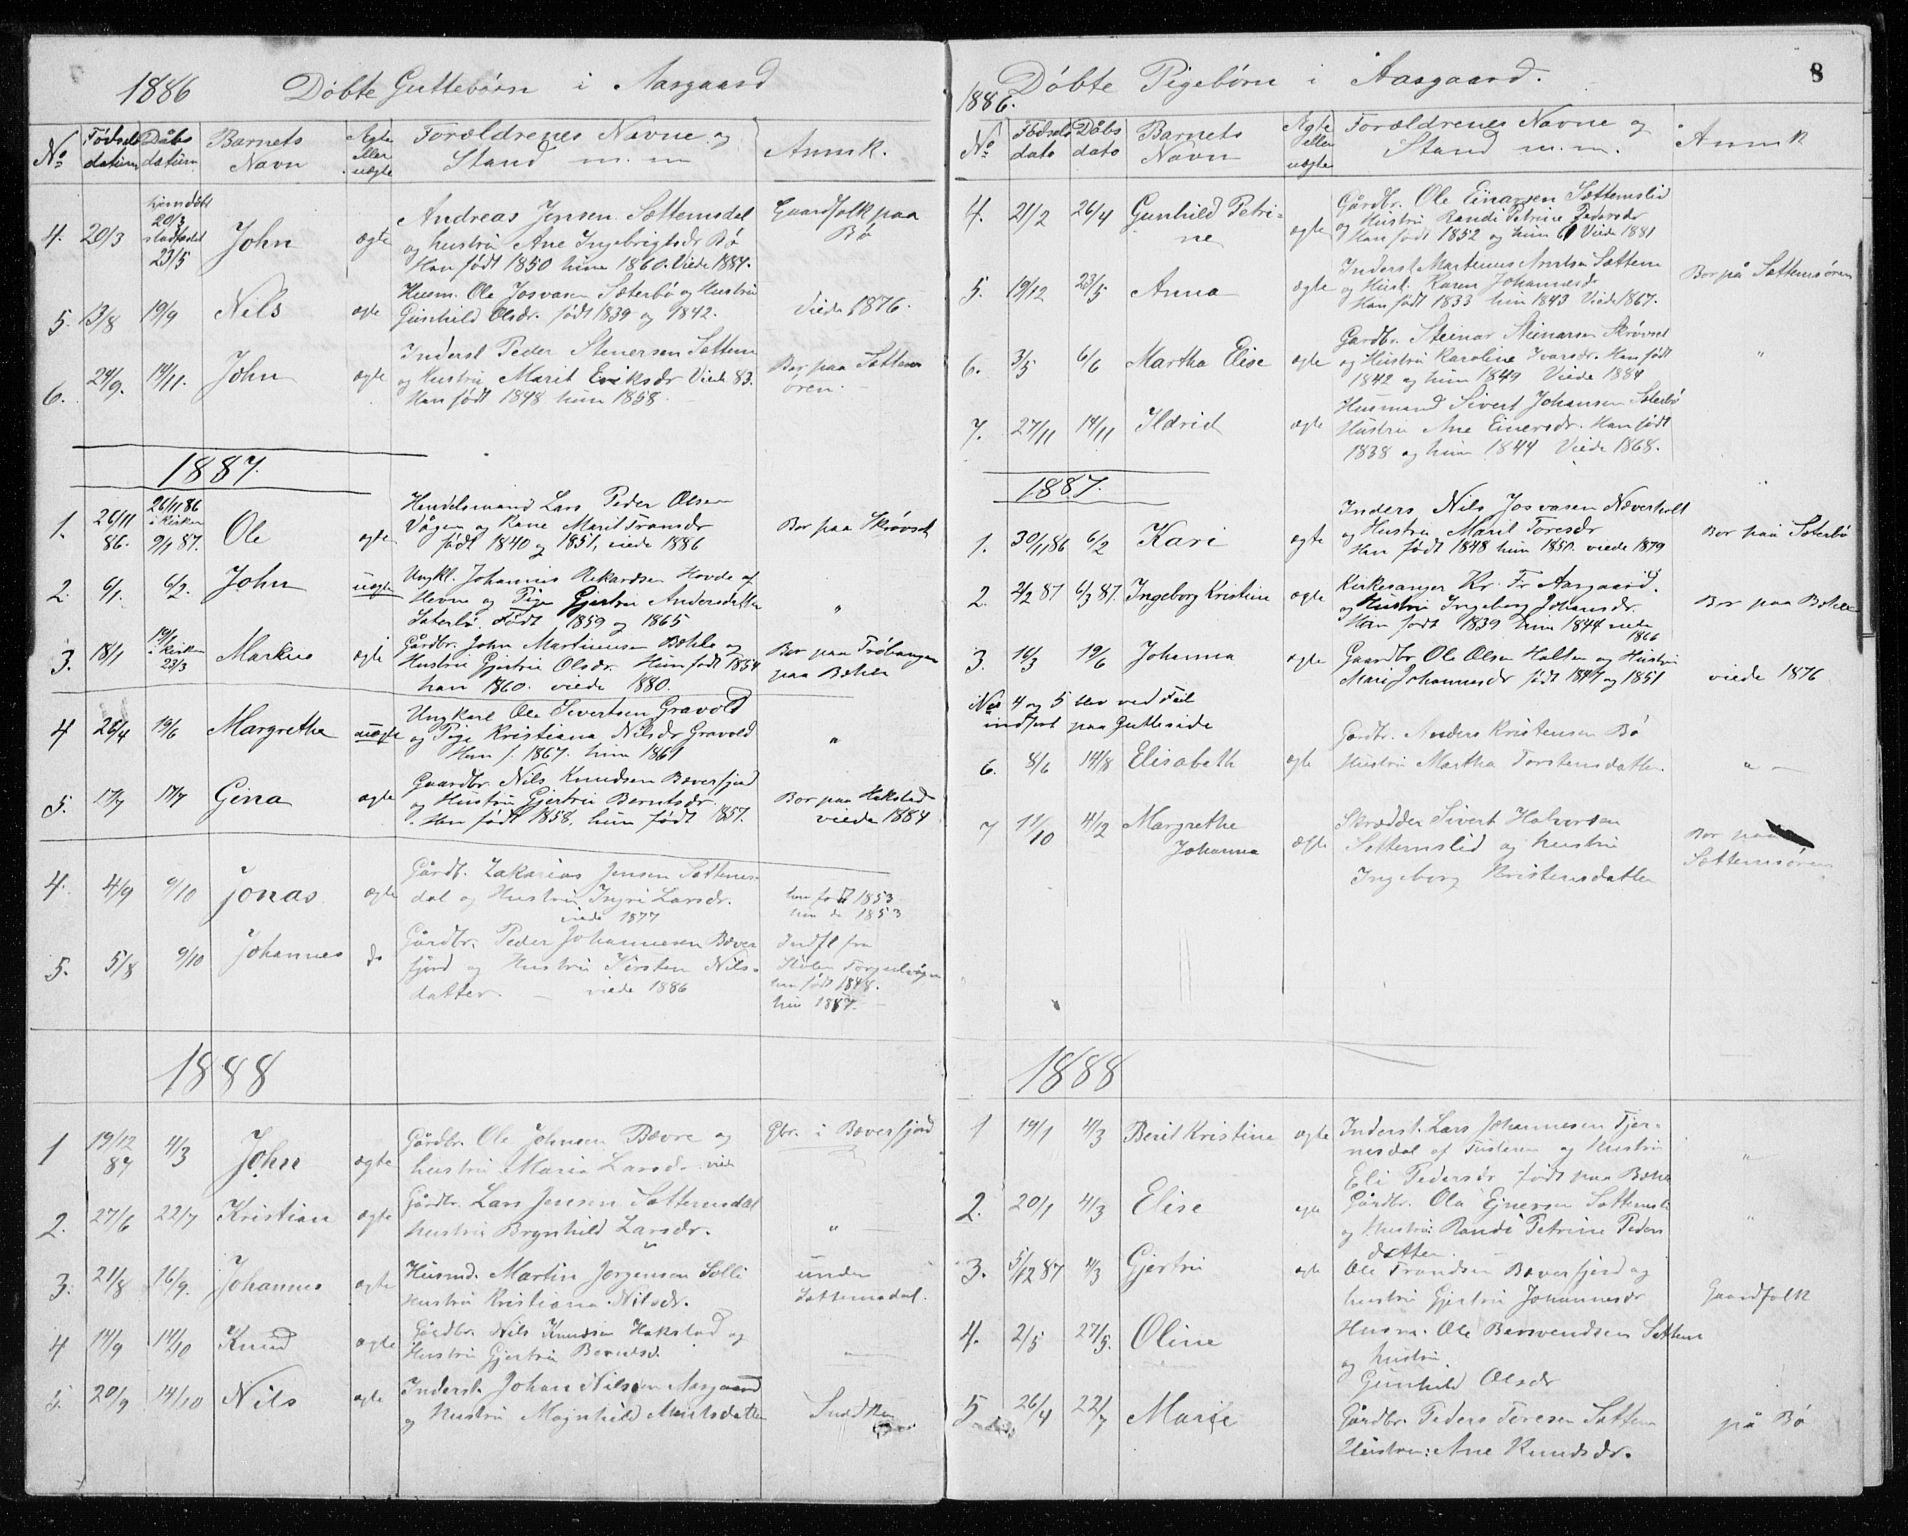 1886 Döbte Guttebörn i Aasgaard
No Födsels datum Daabs datum Barnets Navn Ægte eller uægte Forældrenes Navne og Stand m. m Anmk.
4. 20/3 hjemdöbt 20/3 stadfædet 23/5 John ægte Andreas Jensen Sættemsdal
og hustru Ane Ingebrigtsdr Bö
Han född 1850 hun 1860. Viede 1884.
Gaardfolk paa
Bö
5. 13/8 19/9 Nils ægte Husm. Ole Josvasen Sæterbö og Hustru
Gunhild Olsdr. född 1839 og 1842.
Viede 1876.
6. 24/9. 14/11. John ægte Inderst Peder Stenersen Sættem
og Hustru Marit Eriksdr Viede 83.
Han født 1848 hun 1858.
Bor paa Sættems
ören.
1887.
1. 26/11 86. 26/11 86 i Kirken 9/1 87. Ole ægte Handelsmand Lars Peder Olsen
Vågen og Kone Marit Fransdr
født 1840 og 1851, viede 1886
Bor paa Skrövset
2. 6/1. 6/2. John uægte Ungkl. Johannes Rikardsen Hovde af
Hevne og Pige Gjertru Andersdatter
Sæterbö. Født 1859 og 1865
"
3. 18/1 i Kirken 23/3 Markus ægte Gårdbr. John Martinusen Bæhle og
Hustru Gjertru Olsdr. Hun født 1854
han 1860. viede 1880.
Bor paa
paa Bæhle
4 28/4 19/6 Margrethe uægte Ungkarl Ole Sivertsen Gravold
og Pige Kristiana Nilsdr Gravold
Han f. 1867. hun 1861
"
5. 17/7 Gina ægte Gaardbr. Nils Knudsen Bæverfjord
og Hustru Gjertru Berntsdr.
Han født 1858, hun født 1857.
Bor paa Hakstad
viede 1884
4. 4/9 9/10 Jonas ægte Gårdb. Zakarias Jensen Sættems-
dal og Hustru Ingri Larsdr.
viede 1877
han født 1853
hun do 1853
5. 5/8 9/10 Johannes do Gårdbr. Peder Johannesen Bæver
fjord og Hustru Kirsten Nils-
datter. — viede 1886
Indfl fra
han født 1848.
hun
1888
1 19/12 87 4/3 John ægte Gårdbr. Ole Johnsen Bævre og
hustru Maria Larsdr. vied
Gbr. i Bæverfjord
2. 27/6 22/7 Kristian ægte Gårdbr. Lars Jensen Sættemsdal
hustru Brynhild Larsdr.
"
3. 21/8 16/9. Johannes ægte Husmd. Martin Jörgensen Solli
Hustru Kristiana Nilsdr.
under
Sættemsdal.
4 14/9 14/10 Knud ægte Gårdbr. Nils Knudsen Hakstad og
Hustru Gjertru Berntsd.
5. 20/9 14/10 Nils ægte Inderst. Johan Nilsen Aasgaard
og Hustru Magnhild
1886. Döbte Pigebörn i Aasgaard. 8
No Födsels dato Dåbs dato Barnets Navn Ægte eller uægte Forældrenes Navne og Stand m. m. Anmk
4. 21/2 26/4 Gunhild Petri-
ne ægte Gårdbr. Ole Einarsen Sættemslid
og Hustru Randi Petrine Pedersdr
Han født 1852 og hun 61 Viede 1881
5. 19/12 23/5 Anna ægte Inderst Martinus Arntsen Sættem
og Hust. Karen Johannesdr
Han født 1833 hun 1843 Viede 1867.
Bor på Sættemsören
6. 3/5 6/6 Martha Elise ægte Gårdbr. Steinar Steinarsen Skrövset
og Hustru Karoline Ivarsdr. Han født
1842 og hun 1849 Viede 1884
"
7. 27/11 14/11 Ildrid ægte Husmand Sivert Johansen Sæterbö
Hustru Ane Einersdr. Han født
1838 og hun 1844 Viede 1868.
1887.
1. 30/11 86 6/2 Kari ægte Inders Nils Josvasen Næverholt
og Hustru Marit Toresdr
Han født 1848 hun 1850. viede 1879
Bor paa Sæterbö
2. 2/2 87 6/3 87. Ingeborg Kristine ægte Kirkesanger Kr. Fr Aasgaard.
og Hustru Ingeborg Johansdr.
Han født 1839 hun 1844 viede
1866
Bor paa Bæhle
3. 19/6 Johanna ægte Gaardbr Ole Olsen Holten og Hustru
Mari Johannesdr født 1847 og 1851
viede 1876
No 4 og 5 blev ved Feil
indført paa Gutteside
6. 8/6 14/8 Elisabeth ægte Gårdbr. Anders Kristensen Bö
Hustru Martha Torstensdatter.
" —
7 11/10 4/12 Margrethe
Johanna ægte Skrædder Sivert Halvorsen
Sættemslid og hustru
Ingeborg Kristensdatter
Bor paa
Sættemsören
1888
1 19/1 4/3 Berit Kristine ægte Inderst. Lars Johannesen Fjer-
nesdal af Tusteren og Hustru
Eli Pedersdr født paa Bæhle
"
2. 20/1 4/3 Elise ægte Gårdbr. Ola Ejnersen Sættemsli
og Hustru: Randi Petrine Peders
datter.
"
3. 5/12 87 4/3 Gjertru ægte Ole Trondsen Bæverfjord og
hustru Gjertru Johannesdr
Gaardfolk
4. 2/5 27/5. Oline Husm. Ole Bersvendsen Sættem
og hustru
Gunhild Olsdr
5 26/4 22/7 Marie Gårdbr. Peders Toresen Sættem
Hustru: Ane Knudsdr.
på Bö